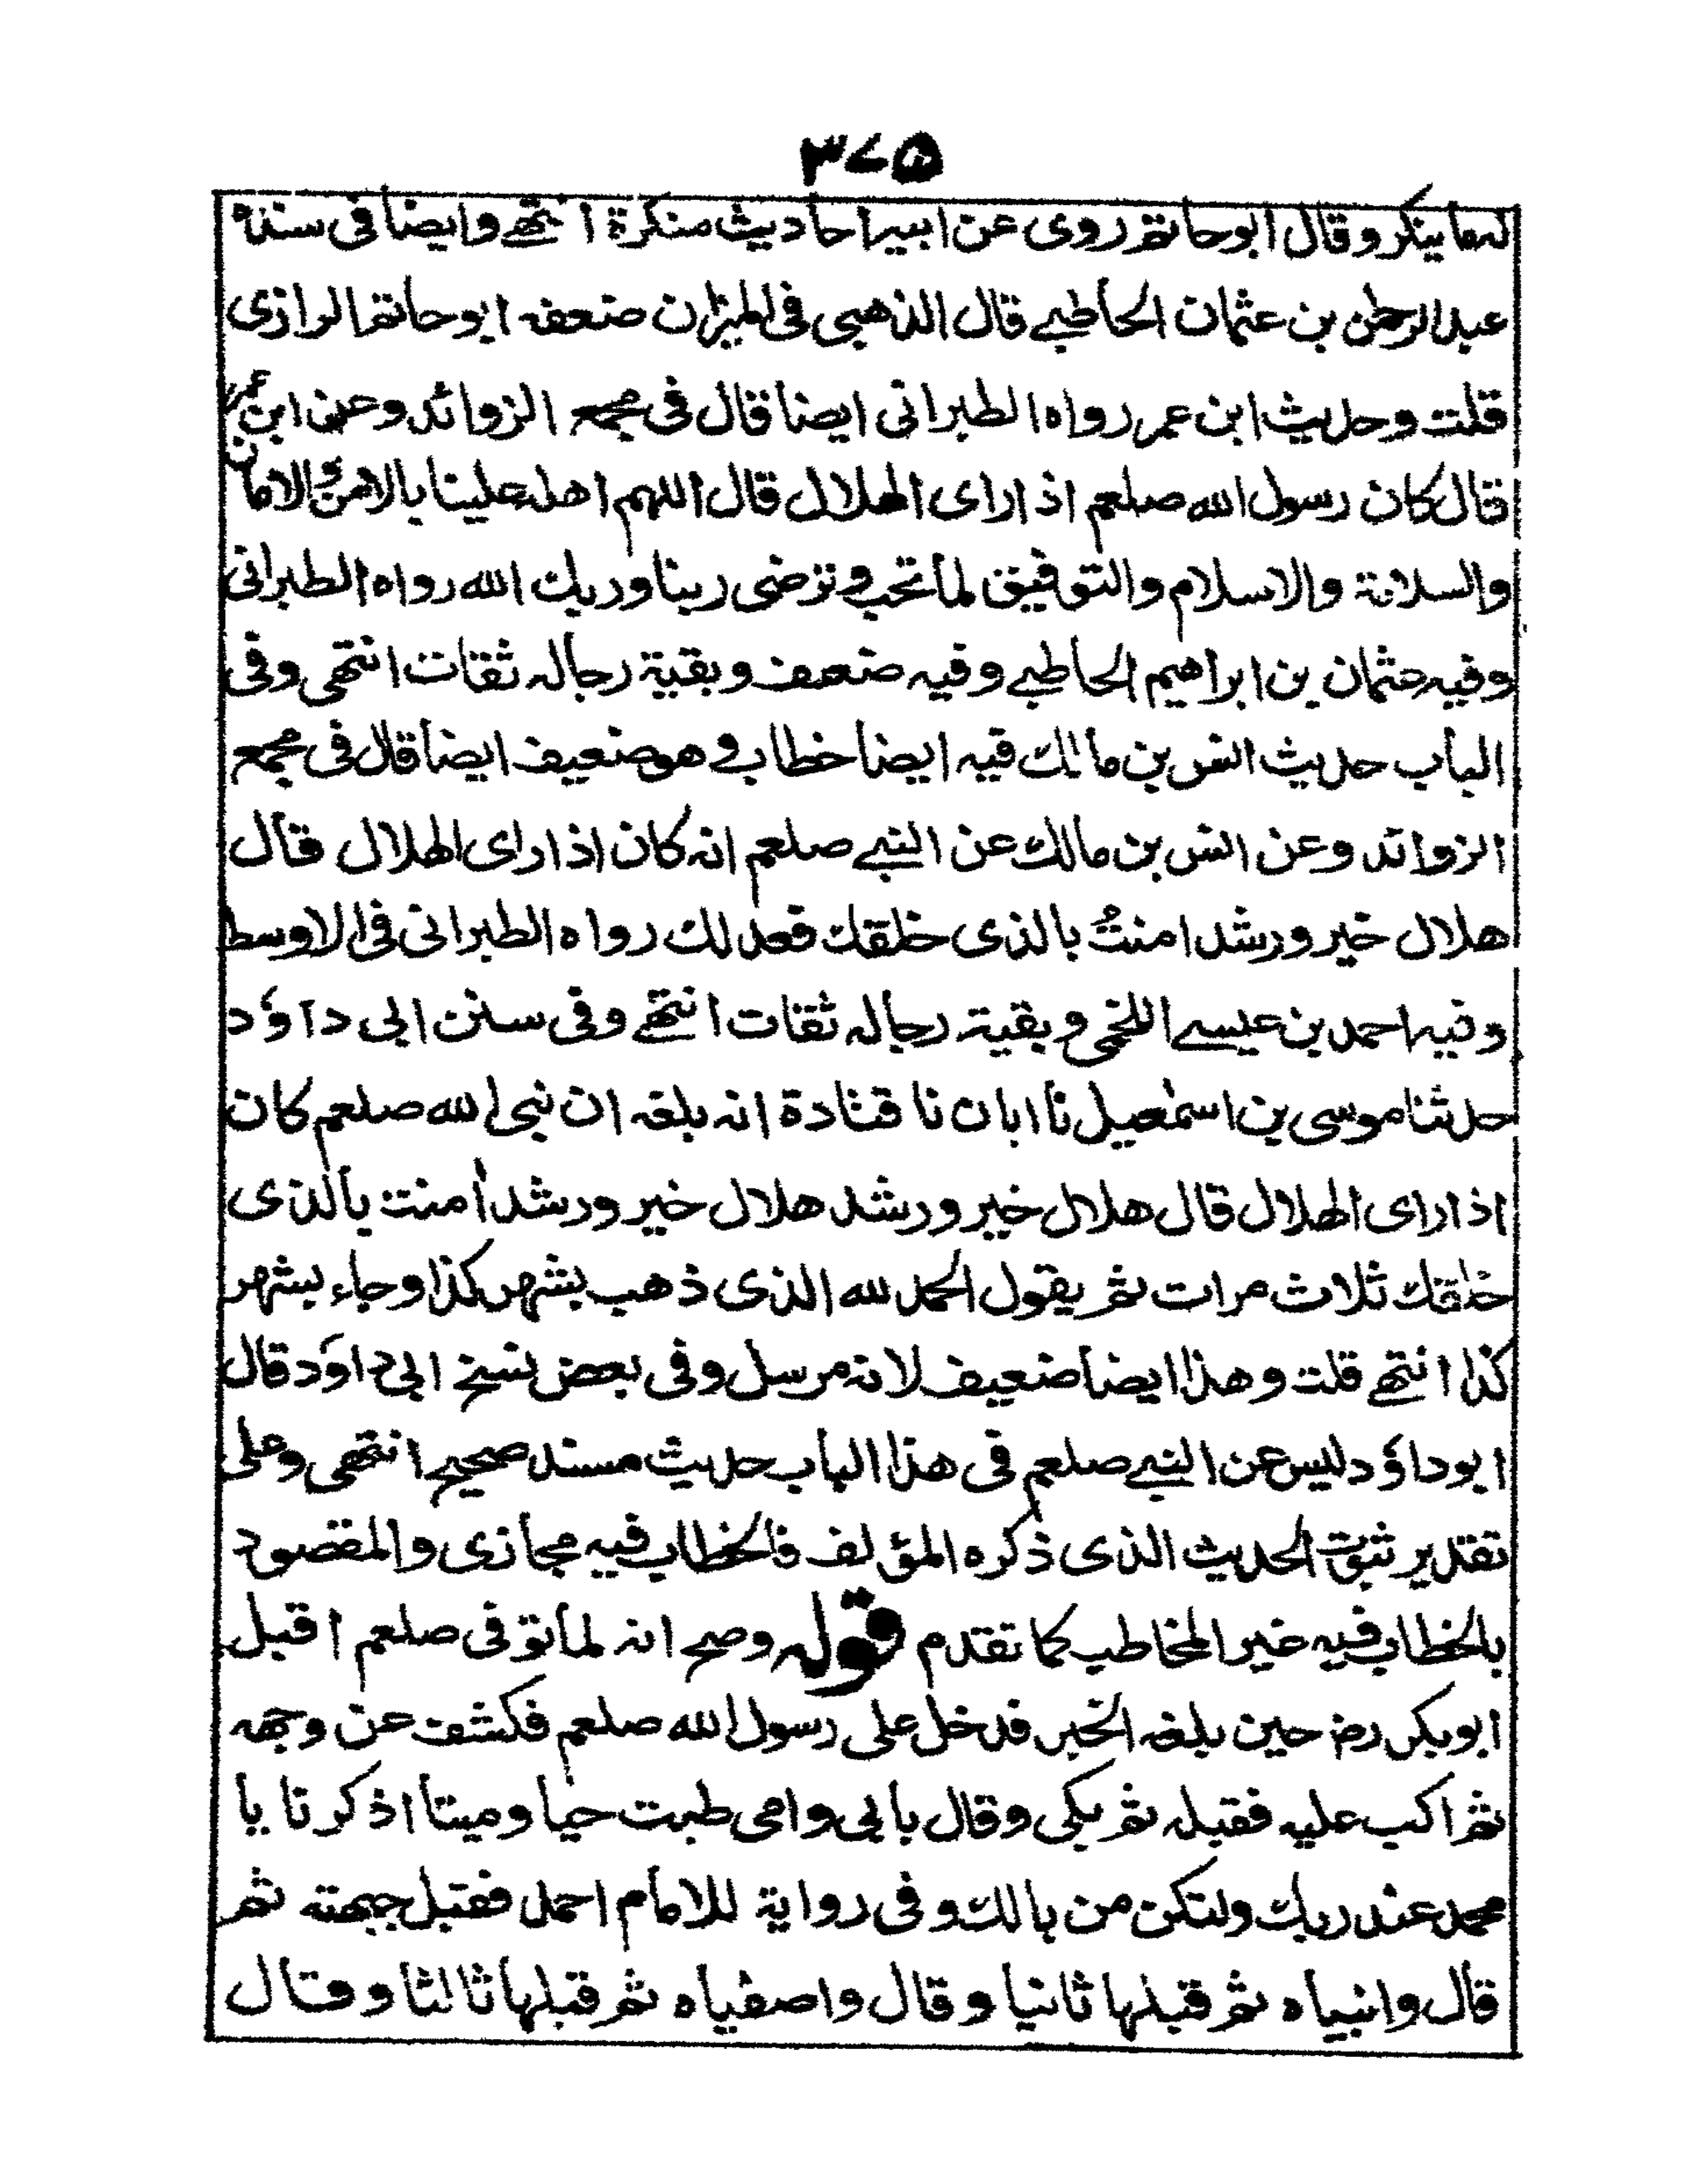 ٣٧٥
له ما ينكر وقال ابو حاتم روى عن ابيه احاديث منكرة انتهے وايضا فى سنده
عبد الرحمٰن بن عثمان الحاطبے قال الذهبى فى الميزان ضعفه ابو حاتم الرازى
قلت وحديث ابن عمر رواه الطبرانى ايضا قال فى مجمع الزوائد وعن ابن عمر
قال كان رسول الله صلعم اذا راى الهلال قال اللهم اهله علينا بالامن والامان
والسلامة والاسلام والتوفيق لما تحب وترضى ربنا وربك الله رواه الطبرانى
وفيه عثمان بن ابراهيم الحاطبے وفيه ضعف وبقية رجاله ثقات انتهى وفى
الباب حديث انس بن مالك فيه ايضا خطاب و هو ضعيف ايضا قال فى مجمع
الزوائد وعن انس بن مالك عن النبے صلعم انه كان اذا راى الهلال قال
هلال خير ورشد امنتُ بالذى خلقك فعدلك رواه الطبرانى فى الاوسط
وفيه احمد بن عيسے اللخمى وبقية رجاله ثقات انتهے وفى سنن ابى داؤد
حدثنا موسى بن اسمٰعيل نا ابان نا قتادة انه بلغه ان نبى الله صلعم كان
اذا راى الهلال قال هلال خير ورشد هلال خير ورشد اٰمنت بالذى
خلقك ثلاث مرات ثم يقول الحمد لله الذى ذهب بشهر كذا وجاء بشهر
كذا انتهے قلت وهذا ايضا ضعيف لانه مرسل وفى بعض نسخ ابى داوَد قال
ابو داؤد ليس عن النبے صلعم فى هذا الباب حديث مسند صحيح انتهى وعلى
تقدير ثبوت الحديث الذى ذكره المؤلف فالخطاب فيه مجازى والمقصود
بالخطاب فيه غير المخاطب كما تقدم قوله وصح انه لما توفى صلعم اقبل
ابو بكر رضـ حين بلغه الخبر فدخل على رسول الله صلعم فكشف عن وجهه
ثم اكب عليه فقبله ثم بكى وقال بابى وامى طبت حيا وميتا اذكرنا يا
محمد عند ربك ولنكن من بالك وفى رواية للامام احمد فقبل جبهته ثم
قال وانبياه ثم قبلها ثانيا وقال واصفياه ثم قبلها ثالثا وقال